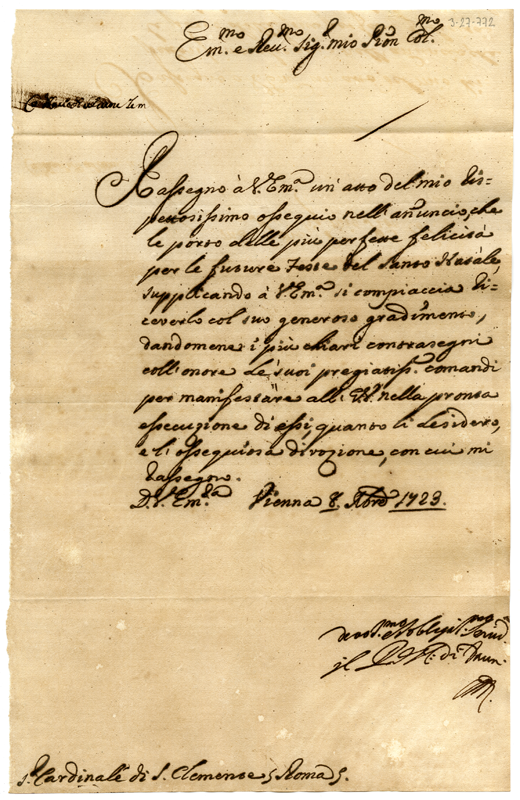 3-27-772
Em.mo e Reu.mo Sig.r mio Pron Col.mo
Rassegno à V.Em.a un'atto del mio ris=
pettosissimo ossequio nell'annuncio, che
le porto delle più perfette felicità
per le future Feste del Santo Natale,
supplicando à V.Em.a si compiaccia ri=
ceverlo col suo generoso gradimento,
dandomene i più chiari contrasegni
coll'onore de suoi pregiatiss. comandi
per manifestare all' nella pronta
essecuzione di essi, quanto li desidero,
e l'ossequiosa divozione, con cui mi
rassegno.
D.V.Em.za Vienna 8. Xbre 1723.
il di
S.r Cardinale di S. Clemente, Roma.